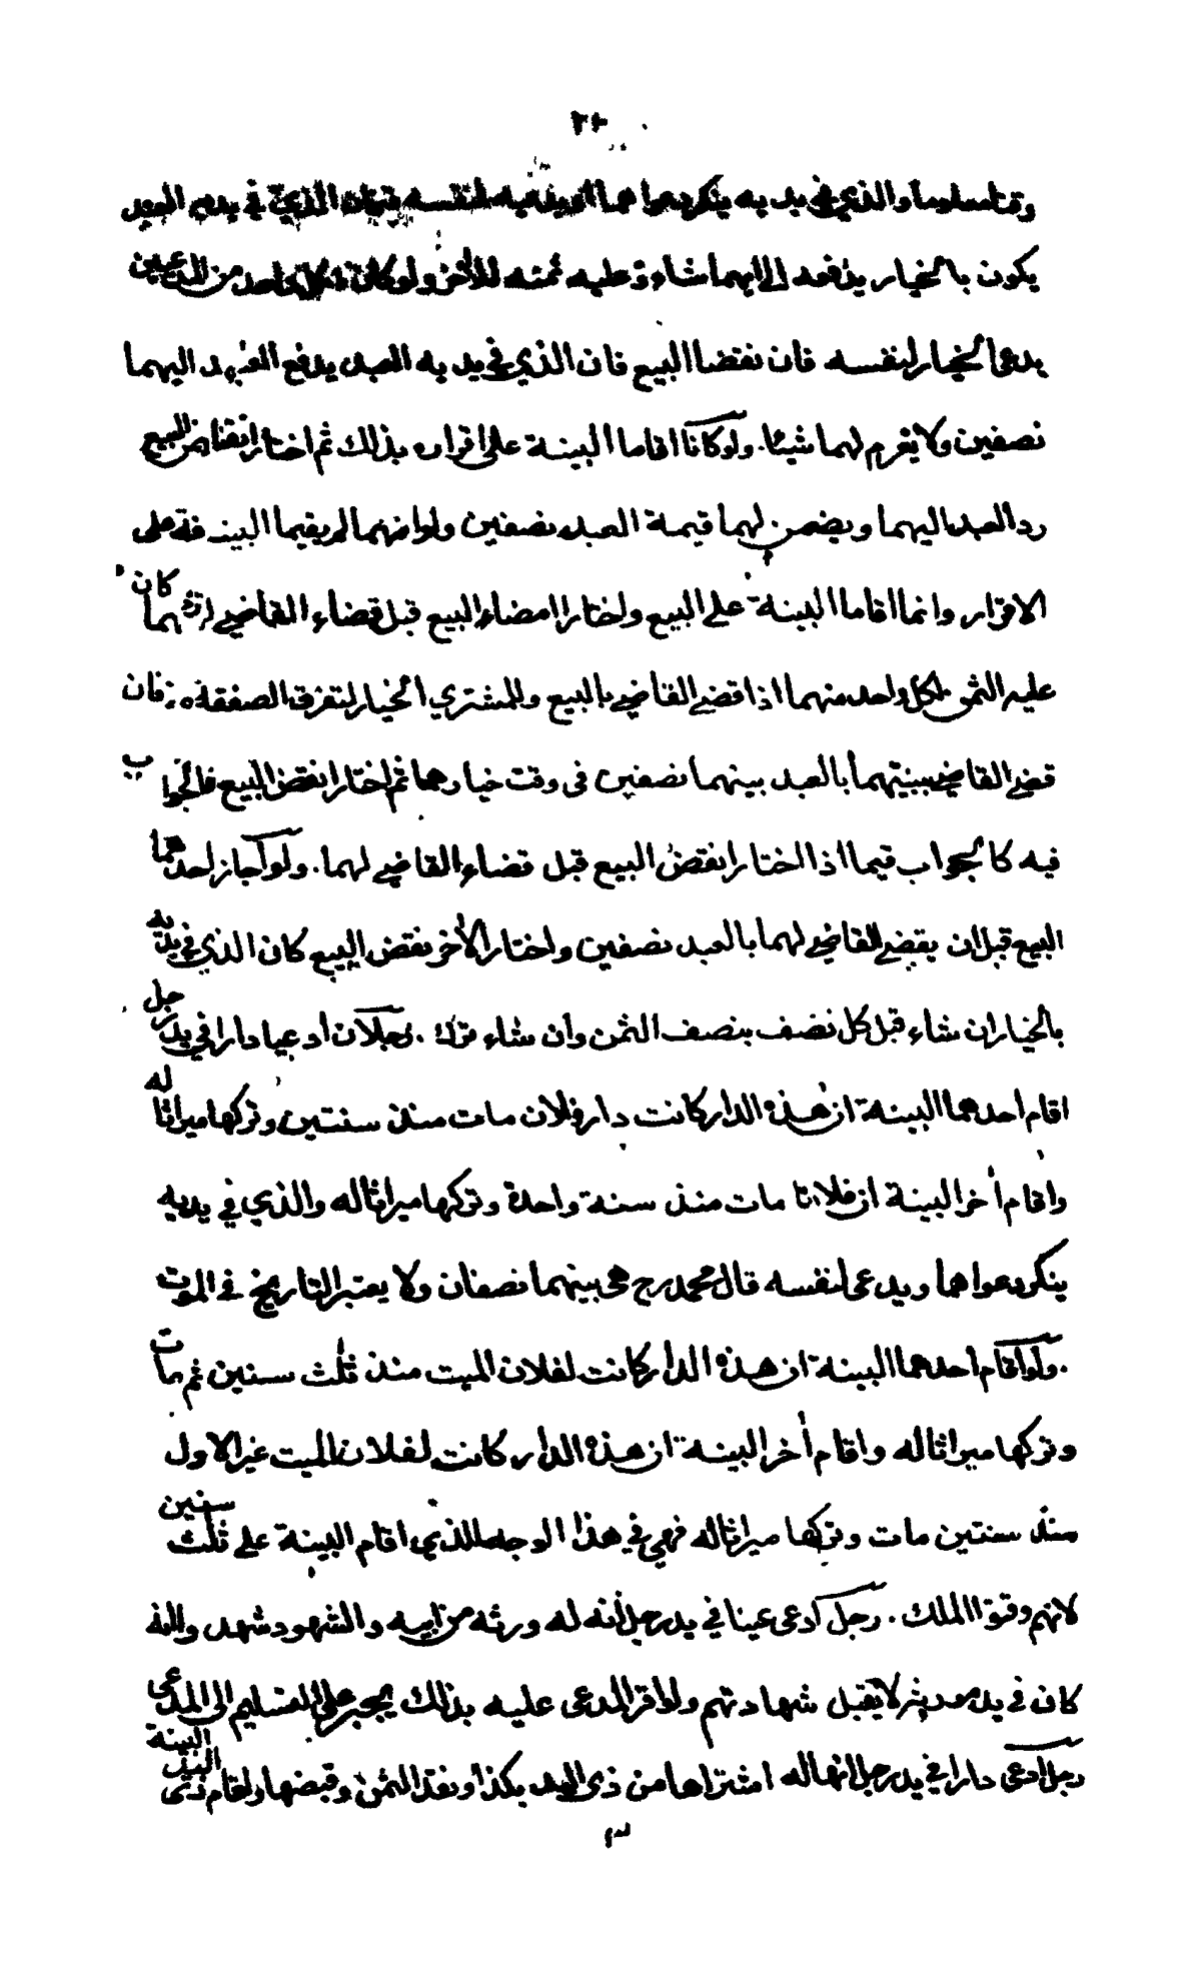 ٢٠
والذي في يديه ينكر دعواهما لنفسه فان الذي في يديه العبد
يكون بالخيار يدفعه الى ايهما شاء وعليه ثمنه للآخر ولو كان كل واحد من المدعيين
يدعى الخيار لنفسه فان نقضا البيع فان الذي في يديه العبد يدفع العبد اليهما
نصفين ولا يغرم لهما شيئا . ولو كانا اقاما البينة على اقراره بذلك ثم اختارا نقض البيع
رد العبد اليهما ويضمن لهما قيمة العبد نصفين ولو انهما لم يقيما البينة على
الاقرار وانما اقاما البينة على البيع واختارا امضاء البيع قبل قضاء القاضي كان
عليه الثمن لكل واحد منهما اذا قضى القاضي بالبيع وللمشتري الخيار لتفرق الصفقة . فان
قضى القاضي ببينتهما بالعبد بينهما نصفين فى وقت خيارهما ثم اختارا نقض البيع فالجواب
فيه كالجواب فيما اذا اختارا نقض البيع قبل قضاء القاضي لهما . ولو اجاز احدهما
البيع قبل ان يقضي القاضي لهما بالعبد نصفين واختار الأخر نقض البيع كان الذي في يديه
بالخيار ان شاء قبل كل نصف بنصف الثمن وان شاء ترك . رجلان ادعيا دارا في يد رجل
اقام احدهما البينة ان هذه الدار كانت دار فلان مات منذ سنتين وتركها ميراثا له
واقام أخر البينة ان فلانا مات منذ سنة واحدة وتركها ميراثا له والذي في يديه
ينكر دعواهما ويدعى لنفسه قال محمد رح هى بينهما نصفان ولا يعتبر التاريخ فى الموت
. ولو اقام احدهما البينة ان هذه الدار كانت لفلان الميت منذ ثلث سنين ثم مات
وتركها ميراثا له واقام أخر البينة ان هذه الدار كانت لفلان الميت غير الاول
منذ سنتين مات وتركها ميراثا له فهي في هذا الوجه للذي اقام البينة على ثلث سنين
لانهم وقتوا الملك . رجل ادعى عينا في يد رجل انه له ورثه من ابيه والشهود شهدوا انه
كان في يد مورثه لا يقبل شهادتهم ولو اقر المدعى عليه بذلك يجبر على التسليم الى المدعى
رجل ادعى دارا في يد رجل انها له اشتراها من ذي اليد بكذا ونقد الثمن وقبضها واقام البينة ذى اليد